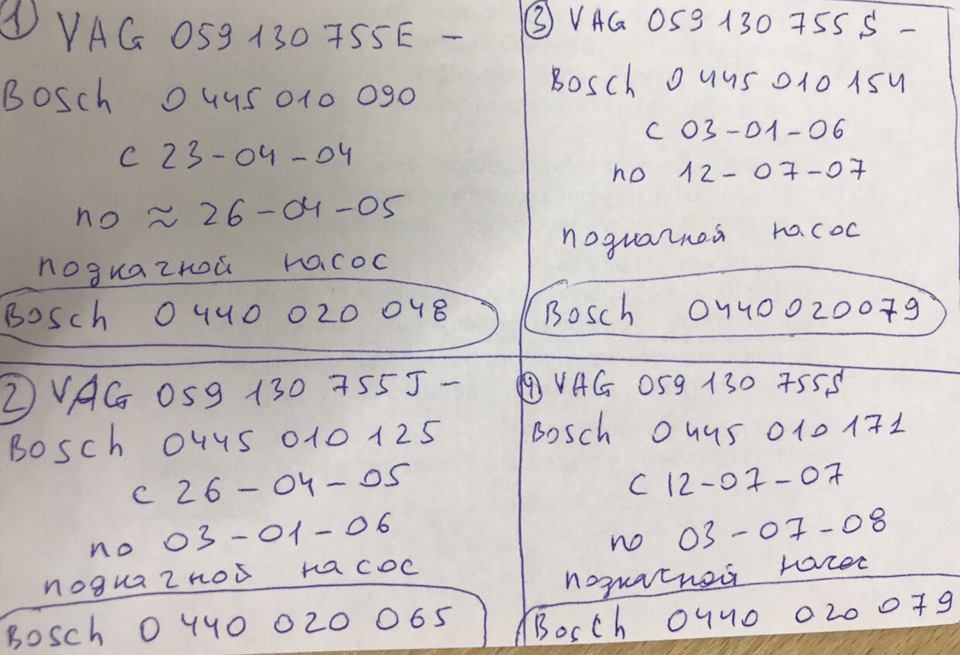 ① VAG 059 130 755E -
Bosch 0 445 010 090
с 23-04-04
по ≈ 26-04-05
подкачной насос
Bosch 0 440 020 048
② VAG 059 130 755J -
Bosch 0445 010 125
с 26-04-05
по 03-01-06
подкачной насос
Bosch 0 440 020 065
③ VAG 059 130 755 S -
Bosch 0 445 010 154
с 03-01-06
по 12-07-07
подкачной насос
Bosch 0440020079
④ VAG 059 130 755S
Bosch 0 445 010 171
с 12-07-07
по 03-07-08
подкачной насос
Bosch 0440 020 079